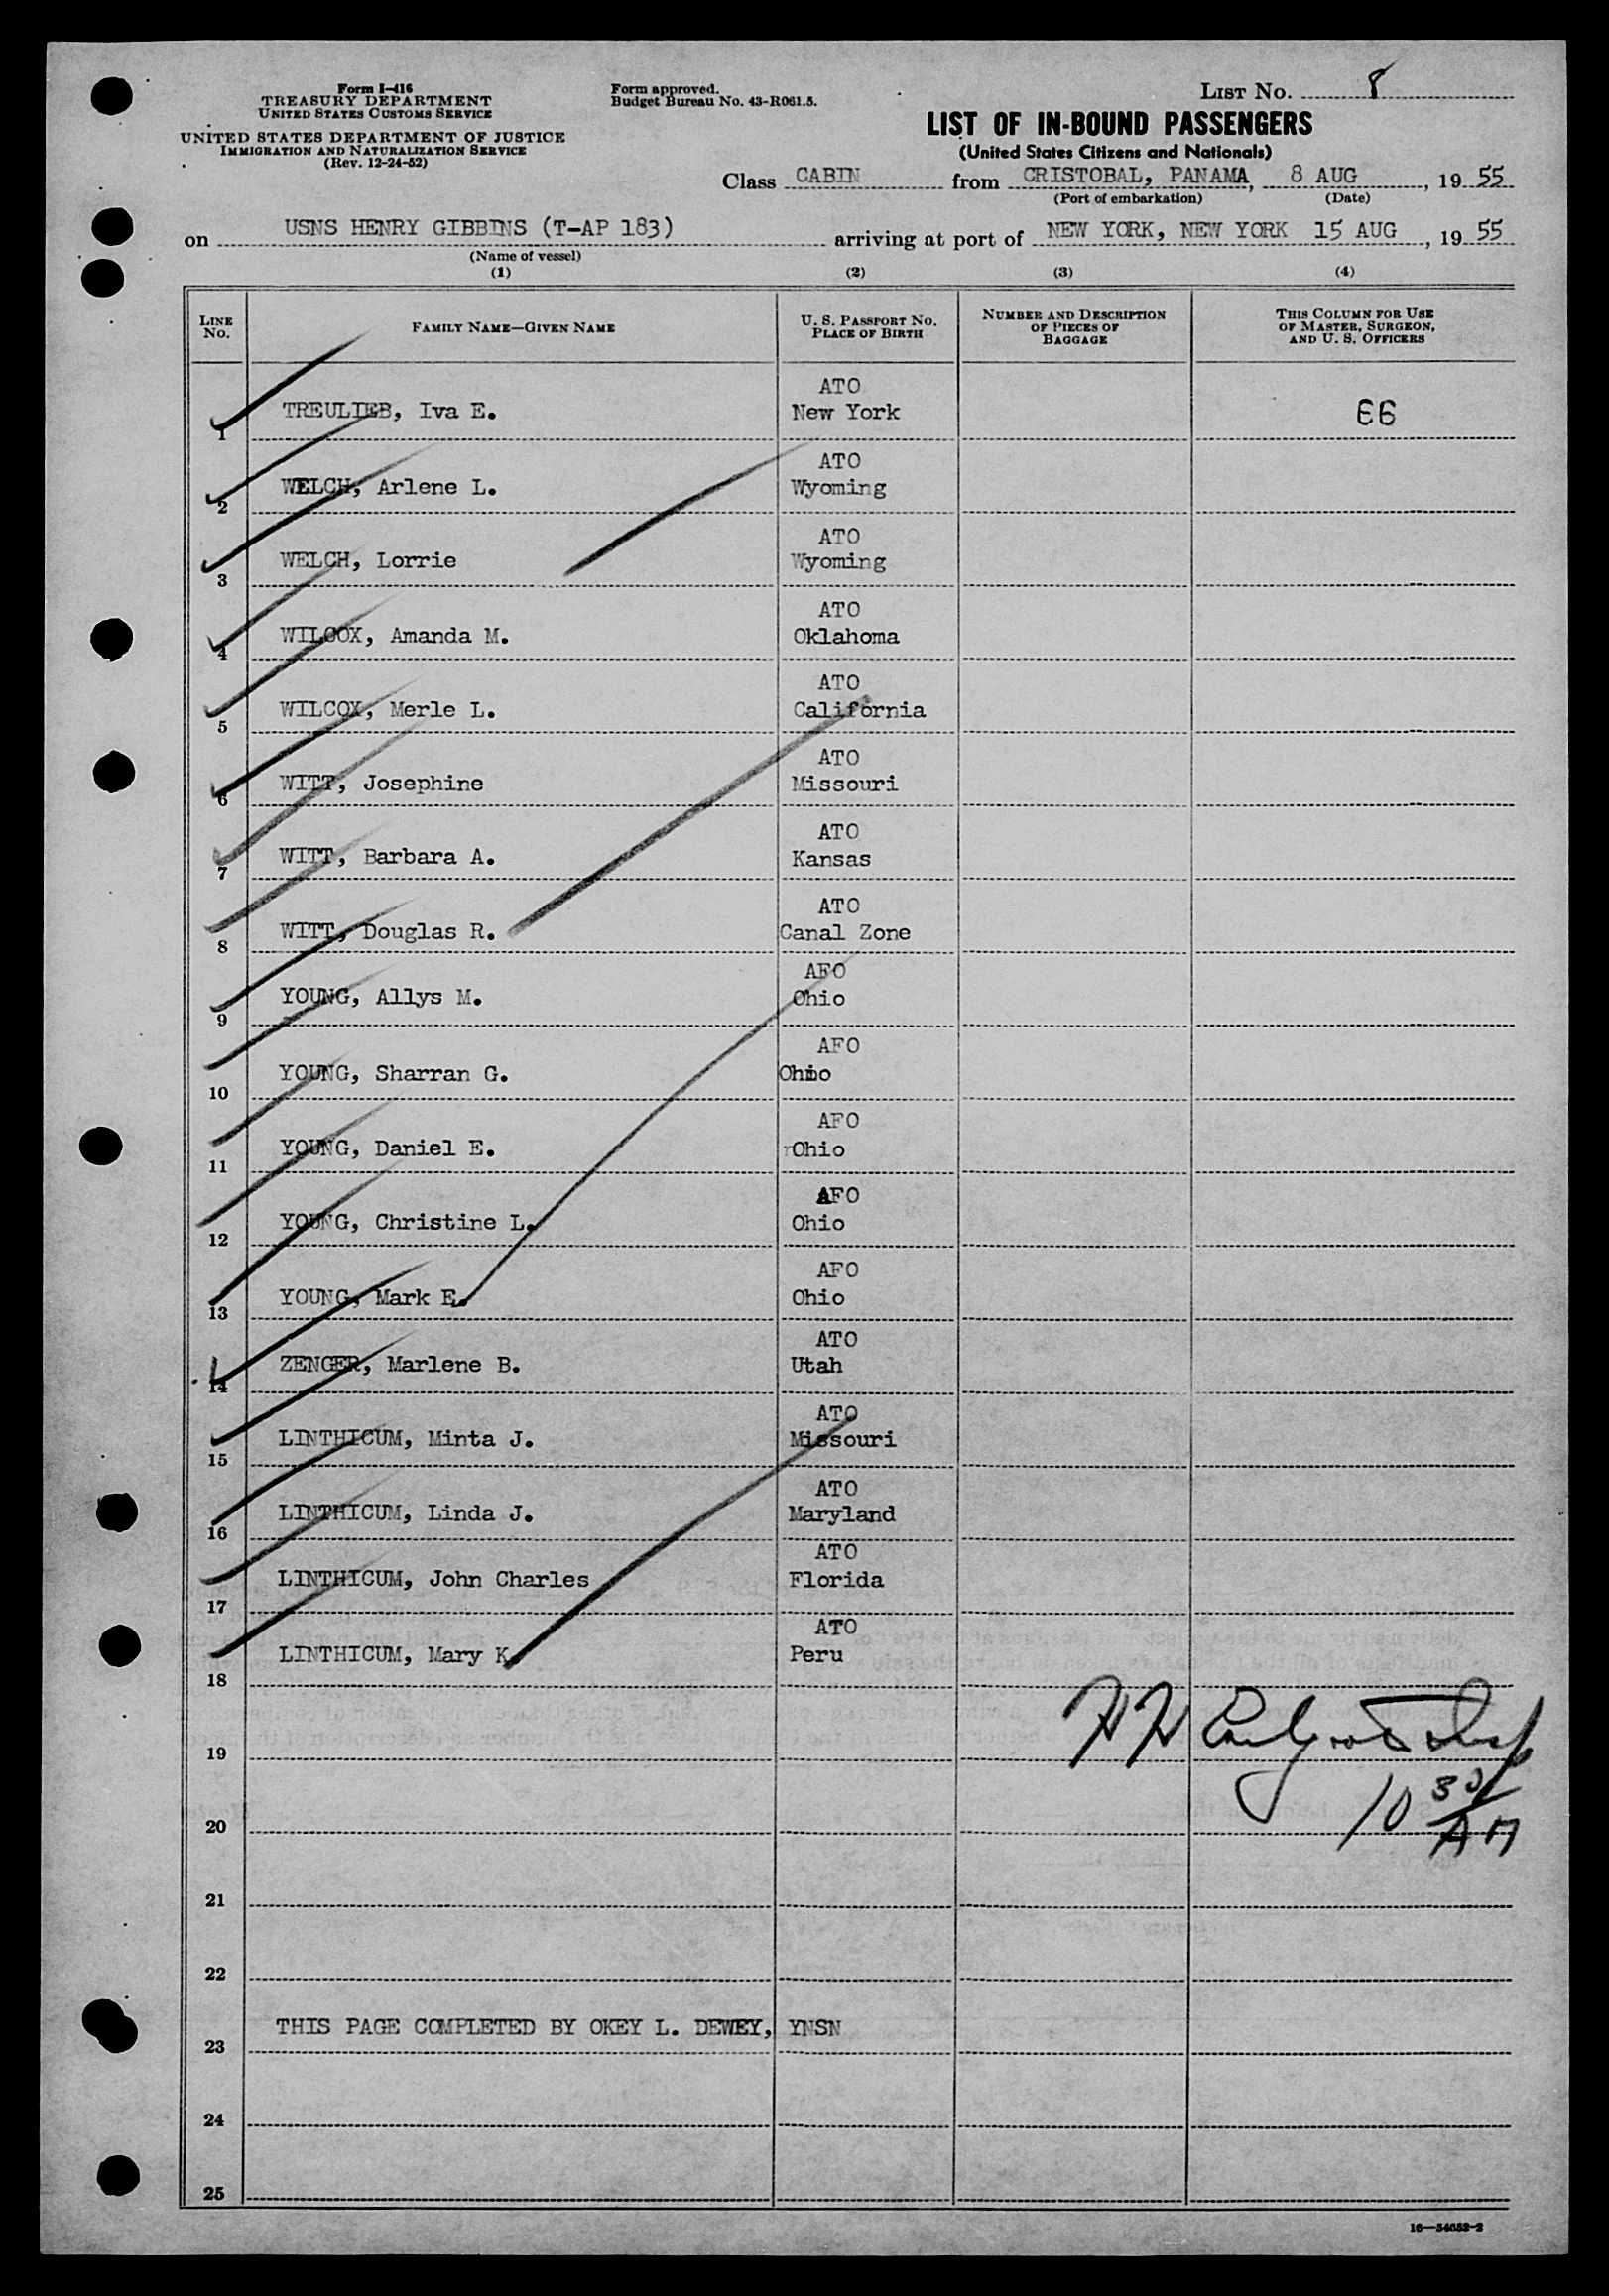 Form I-416
TREASURY DEPARTMENT
UNITED STATES CUSTOMS SERVICE
UNITED STATES DEPARTMENT OF JUSTICE
IMMIGRATION AND NATURALIZATION SERVICE
(Rev. 12-24-52)
Form approved.
Budget Bureau No. 43-R061.5.
LIST NO. 8
LIST OF IN-BOUND PASSENGERS
(United States Citizens and Nationals)
Class CABIN from CRISTOBAL, PANAMA, 8 AUG, 1955
(Port of embarkation) (Date)
on USNS HENRY GIBBINS (T-AP 183) arriving at port of NEW YORK, NEW YORK 15 AUG, 1955
(Name of vessel)
(1) (2) (3) (4)
LINE NO.
FAMILY NAME—GIVEN NAME
U. S. PASSPORT NO.
PLACE OF BIRTH
NUMBER AND DESCRIPTION
OF PIECES OF
BAGGAGE
THIS COLUMN FOR USE
OF MASTER, SURGEON,
AND U. S. OFFICERS
ATO
1 TREULIEB, Iva E. New York 66
ATO
2 WELCH, Arlene L. Wyoming
ATO
3 WELCH, Lorrie Wyoming
ATO
4 WILCOX, Amanda M. Oklahoma
ATO
5 WILCOX, Merle L. California
ATO
6 WITT, Josephine Missouri
ATO
7 WITT, Barbara A. Kansas
ATO
8 WITT, Douglas R. Canal Zone
AFO
9 YOUNG, Allys M. Ohio
AFO
10 YOUNG, Sharran G. Ohio
AFO
11 YOUNG, Daniel E. Ohio
AFO
12 YOUNG, Christine L. Ohio
AFO
13 YOUNG, Mark E. Ohio
ATO
14 ZENGER, Marlene B. Utah
ATO
15 LINTHICUM, Minta J. Missouri
ATO
16 LINTHICUM, Linda J. Maryland
ATO
17 LINTHICUM, John Charles Florida
ATO
18 LINTHICUM, Mary K. Peru
19
20 10 30/AM
21
22
23 THIS PAGE COMPLETED BY OKEY L. DEWEY, YNSN
24
25
16—54052-2